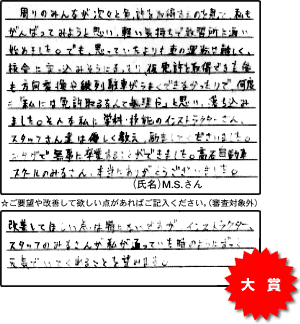 周りのみんなが次々と免許を取得するのを見て、私も
がんばってみようと思い、軽い気持ちで教習所に通い
始めました。でも、思っていたよりも車の運転は難しく、
仮免許を取得できた後
も方向変換や縦列駐車がうまくできなかったりで、何度
に「私には免許取るなんて無理だ」と思い、落ち込み
ました。そんな私に学科・技能のインストラクターさん、
スタッフさん達は優しく教え、励ましてくださいました。
無事に卒業することができました。高石自動車
スクールのみなさん、本当にありがとうございました。
(氏名)M.S.さん
☆ご要望や改善して欲しい点があればご記入ください。(審査対象外)
改善してほしい点は特にないですが、インストラクター、
スタッフのみなさんが私が通っていた時のように
元気でいてくれることを望みます。
大賞